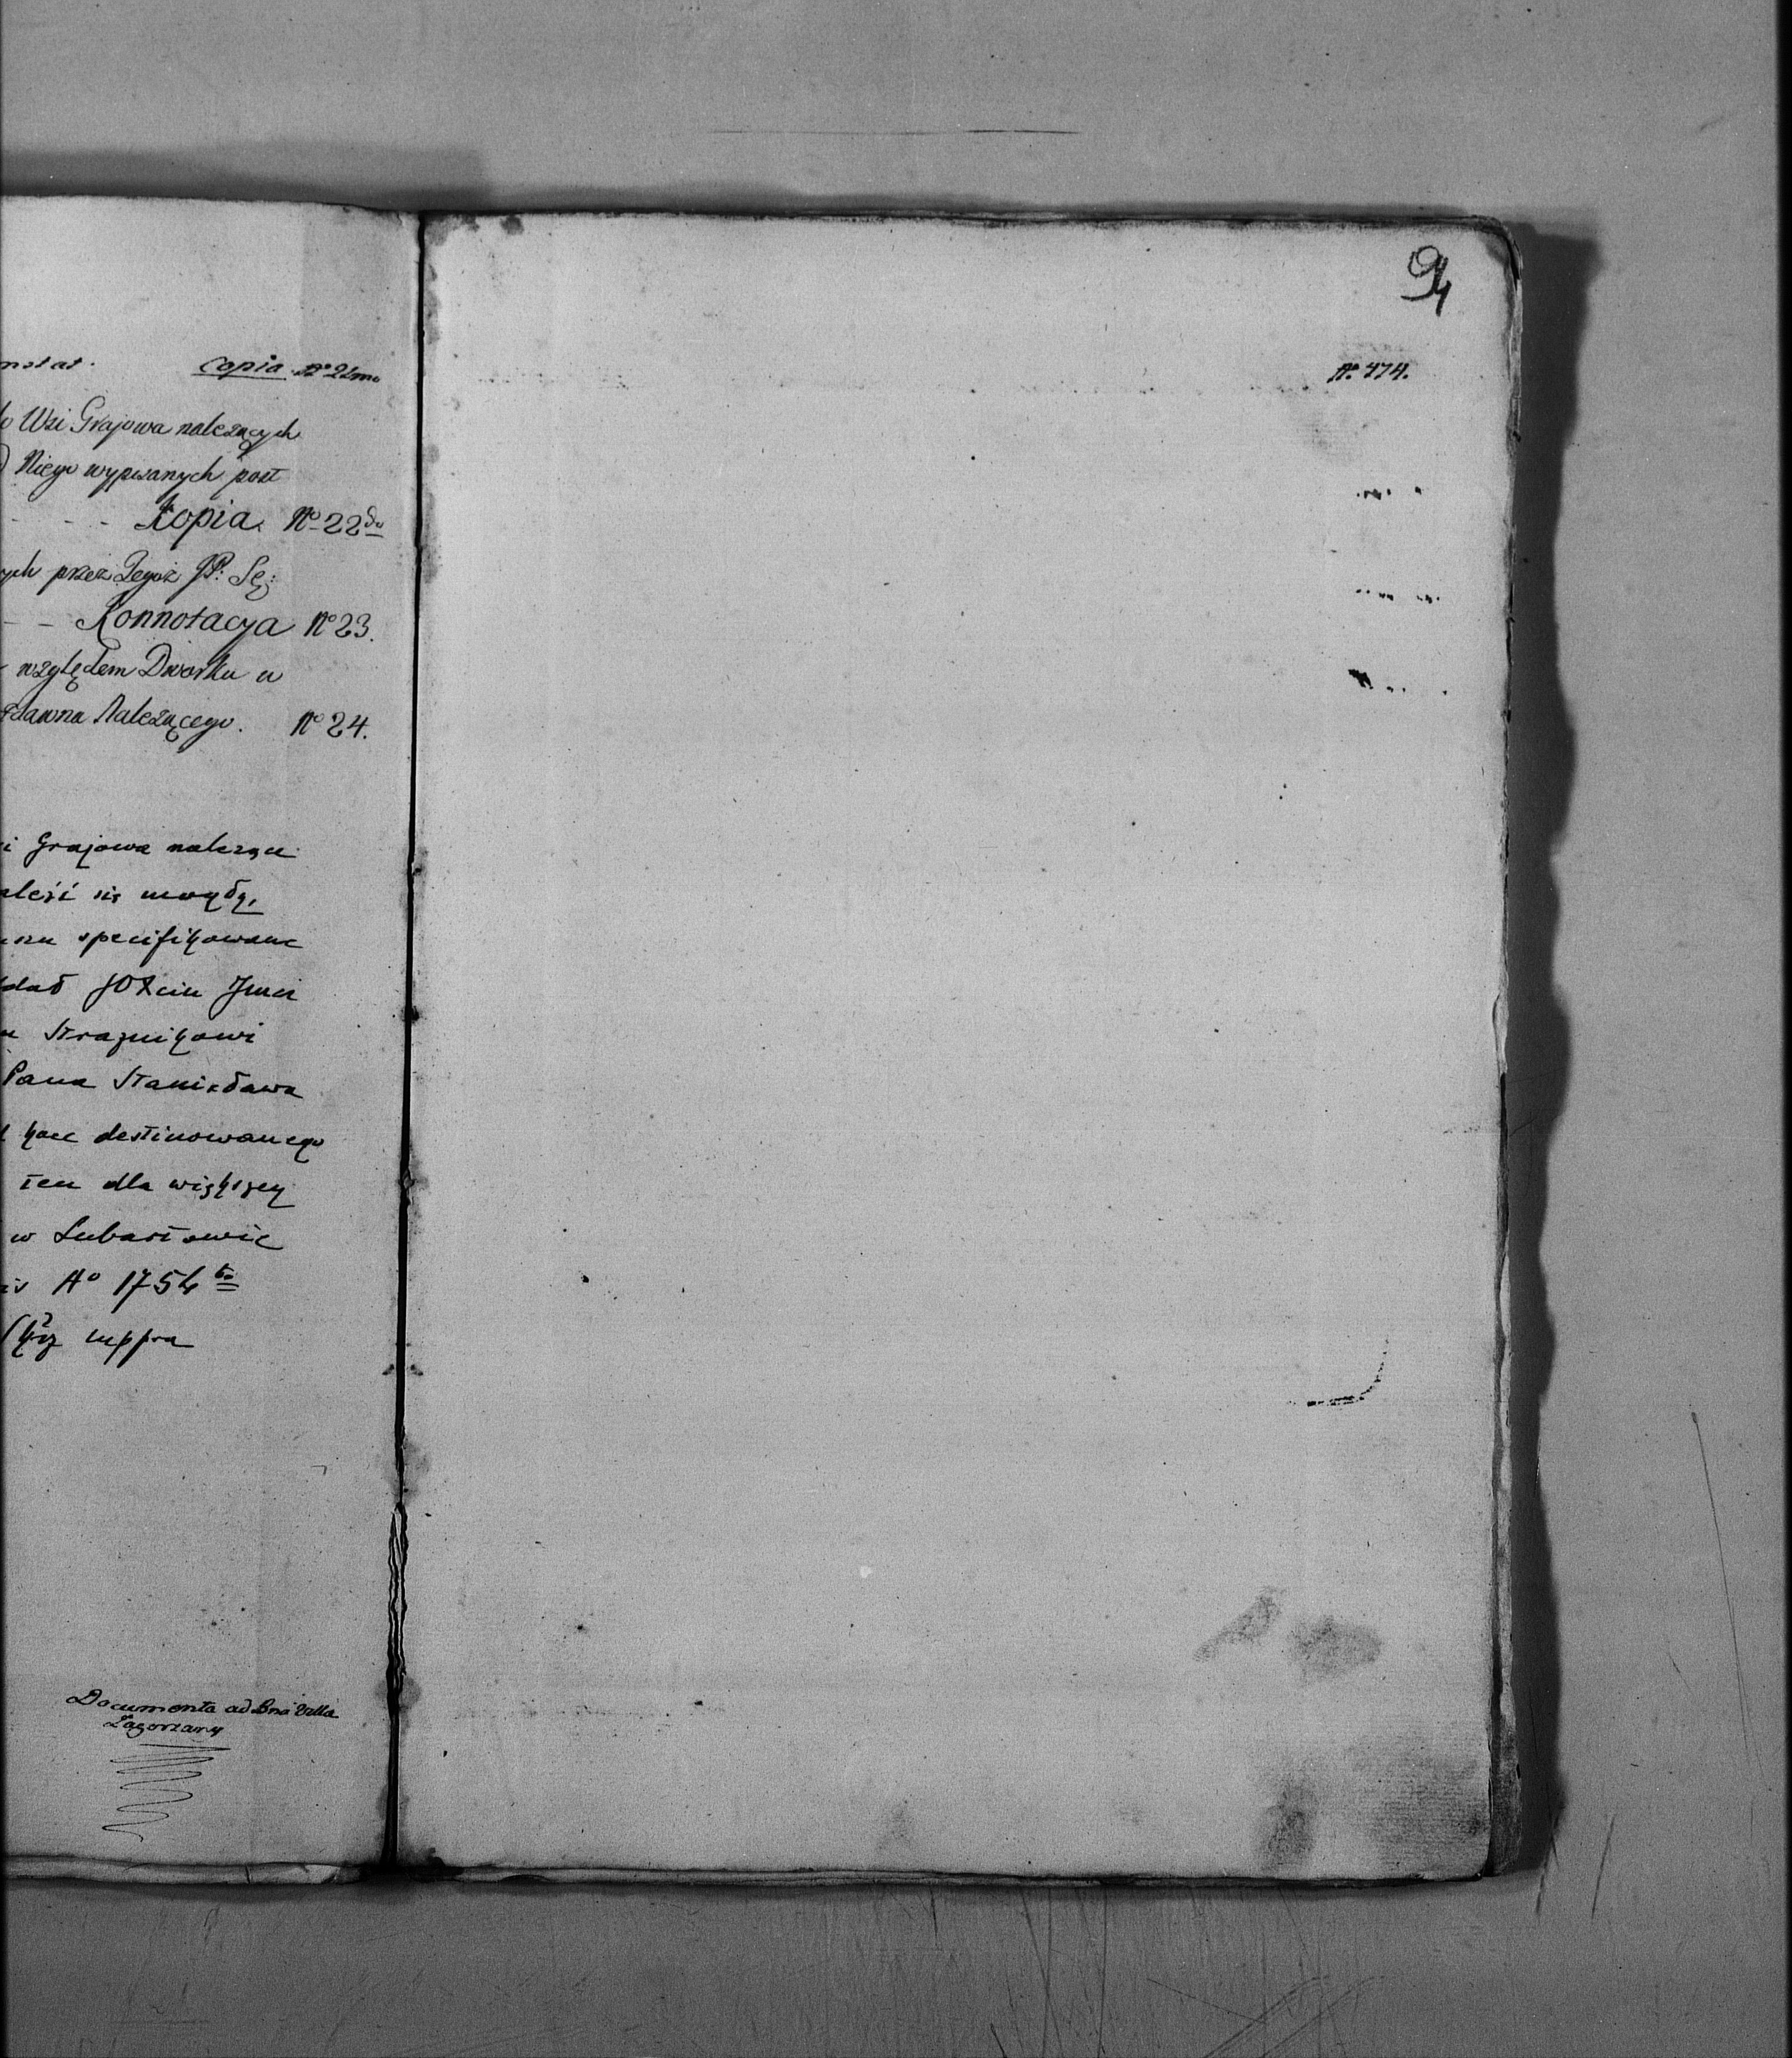 Copia. No 21mo
Wsi Grajowa należących
Niego wypisanych post
Kopia. No 22do
przez Tegoż JP: Sę:
Konnotacya No 23.
względem Dworku u
Należącego. No 24.
Grajowa należące
się mogły,
specifikowane
JOXciu Jmci
Strażnikowi
Pana Stanisława
destinowanego
ten dla większey
w Lubastowie
Ao 1754to
mppra
Documenta ad Bna Villa
Zagorzany
94
No. 474.